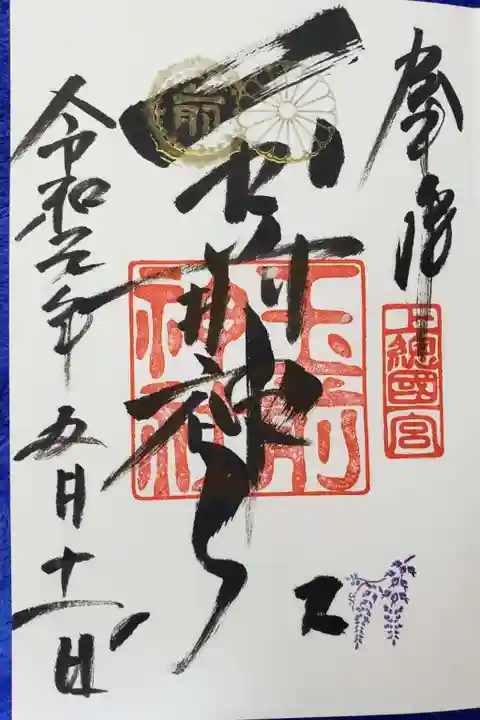 奉拝
上總國一宮
玉前神社
玉前神社
令和元年五月十一日